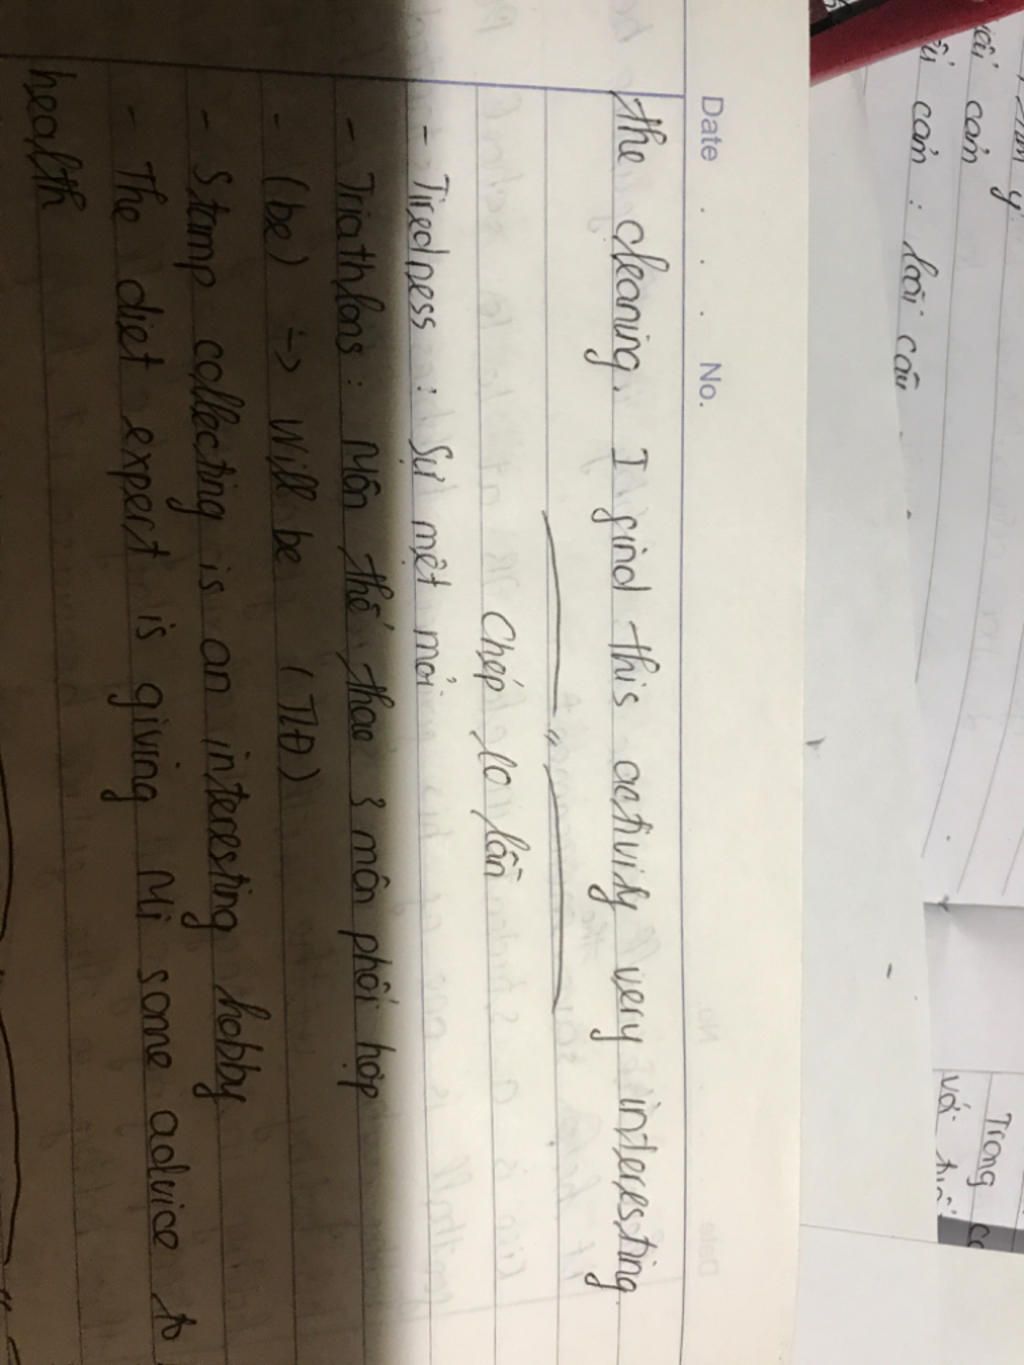 Date . . . No.
the cleaning. I find this activity very interesting.
"
Chép 10 lần
- Tiredness : Sự mệt mỏi
- Triathlons : Môn thể thao 3 môn phối hợp
- (be) -> will be (TLĐ)
- Stamp collecting is an interesting hobby
- The diet expert is giving Mi some advice to
health
cảm
cảm : loài câu
Trong
với